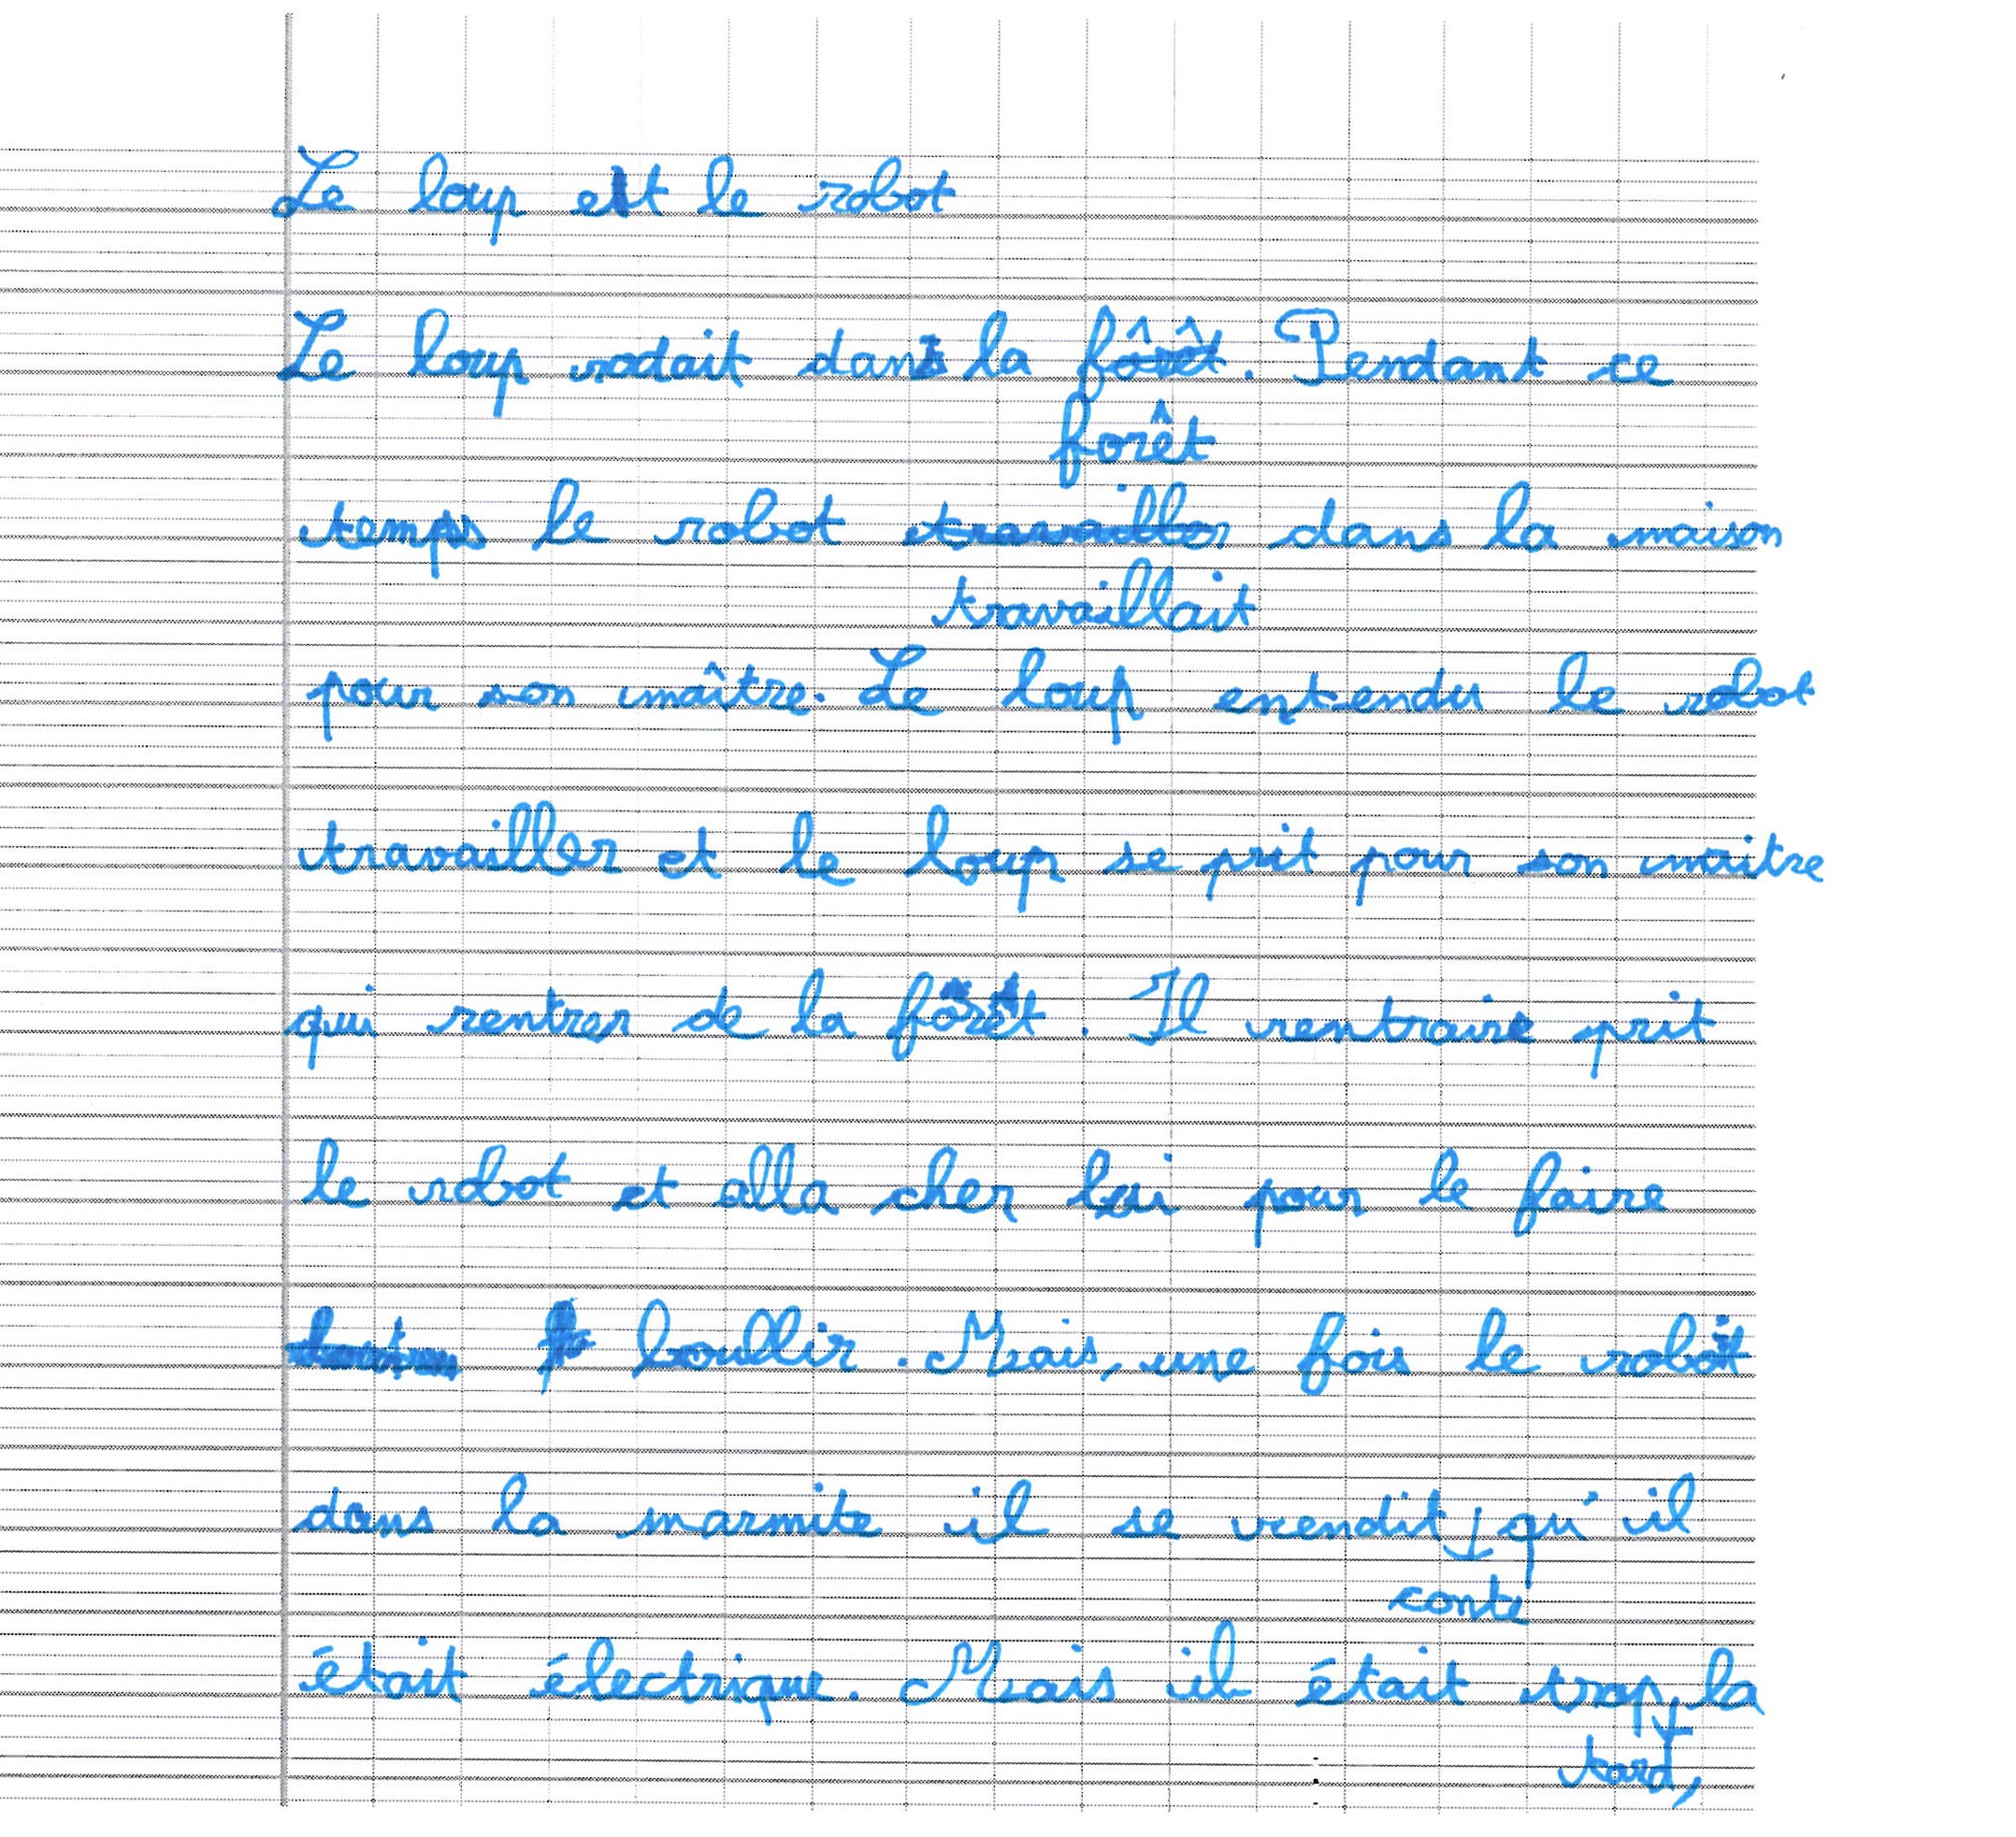 Le loup et le robot
Le loup rodait dans la fôrêt. Pendant ce
forêt
temps le robot travailler dans la maison
travaillait
pour son maître. Le loup entendu le robot
travailler et le loup se prit pour son maitre
qui rentrer de la forêt. Il rentraire prit
le robot et alla cher lui pour le faire
boullir. Mais, une fois le robot
dans la marmite il se rendit ↓ qu'il
conte
était électrique. Mais il était trop ↓ la
tard,